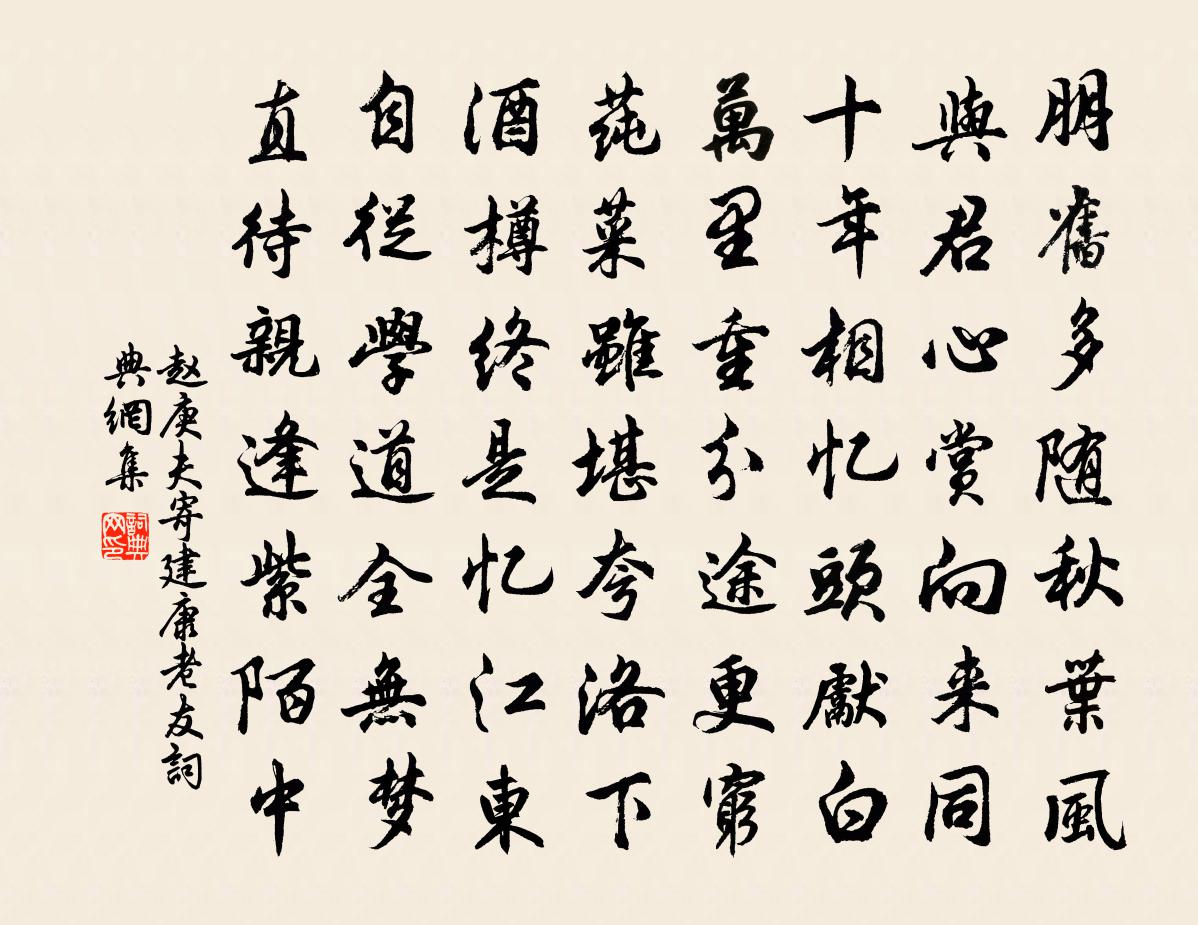 朋舊多随秋葉風
與君心賞向来同
十年相忆頭獻白
萬里重分途更窮
莼菜雖堪夸洛下
酒樽終是忆江東
自從學道全無梦
直待親逢紫陌中
赵庚夫寄建康老友詞
典網集
詞典
网印